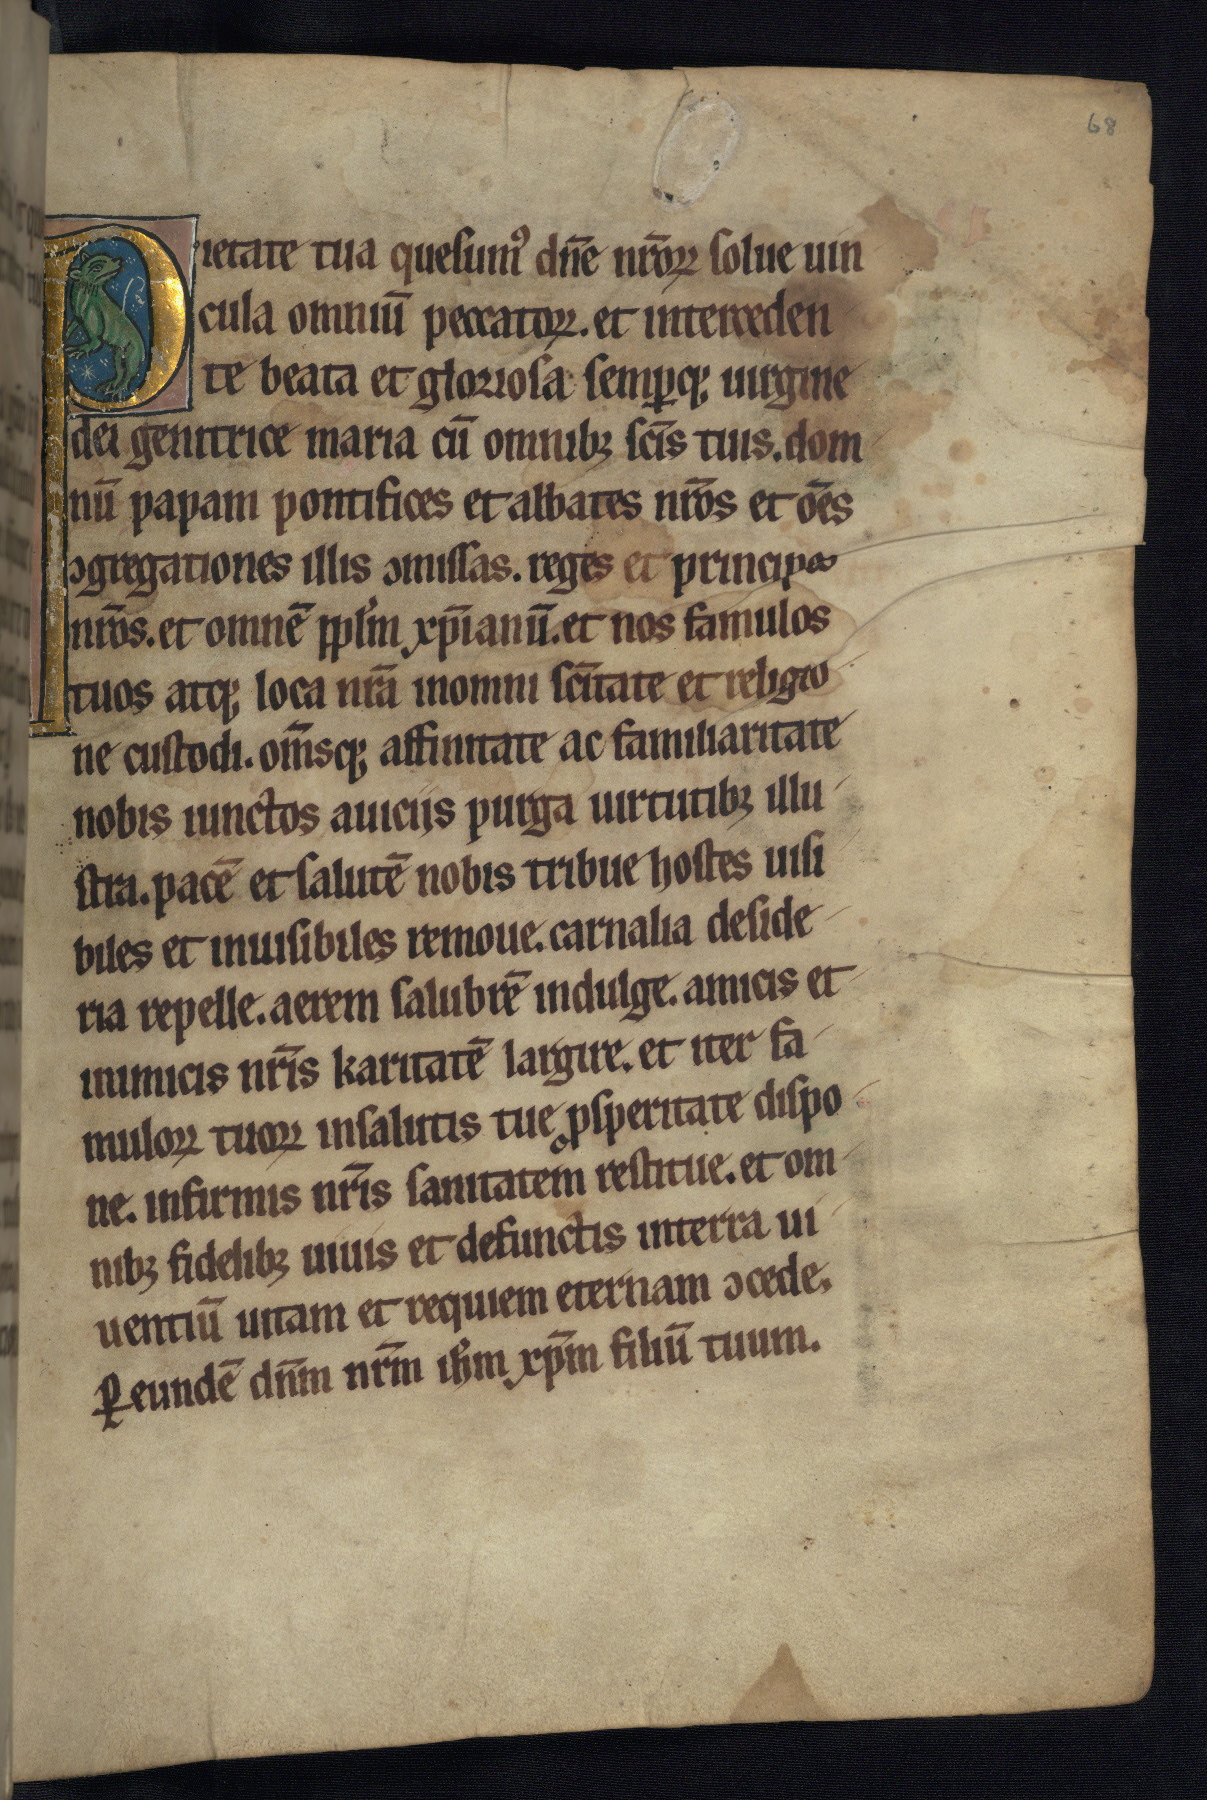 68
Pietate tua quesumꝰ dn̄e nr̄oꝝ solue uin
cula omniū peccatoꝝ. et interceden
te beata et gloriosa semꝑqꝫ uirgine
dei genitrice maria cū omnibꝫ sc̄is tuis. dom
nū papam pontifices et abbates nr̄os et oēs
ꝯgregationes illis ꝯmissas. reges et principes
nr̄os. et omnē ppl̄m xp̄ianū. et nos famulos
tuos atqꝫ loca nr̄a inomni sc̄itate et religio
ne custodi. om̄sqꝫ affinitate ac familiaritate
nobis iunctos auiciis purga uirtutibꝫ illu
stra. pacē et salutē nobis tribue hostes uisi
biles et inuisibiles remoue. carnalia deside
ria repelle. aerem salubrē indulge. amicis et
inimicis nr̄is karitatē largire. et iter fa
muloꝝ tuoꝝ insalutis tue ꝓsperitate dispo
ne. infirmis nr̄is sanitatem restitue. et om
nibꝫ fidelibꝫ uiuis et defunctis interra ui
uentiū uitam et requiem eternam ꝯcede.
ꝑ eundē dn̄m nr̄m ih̄m xp̄m filiū tuum.